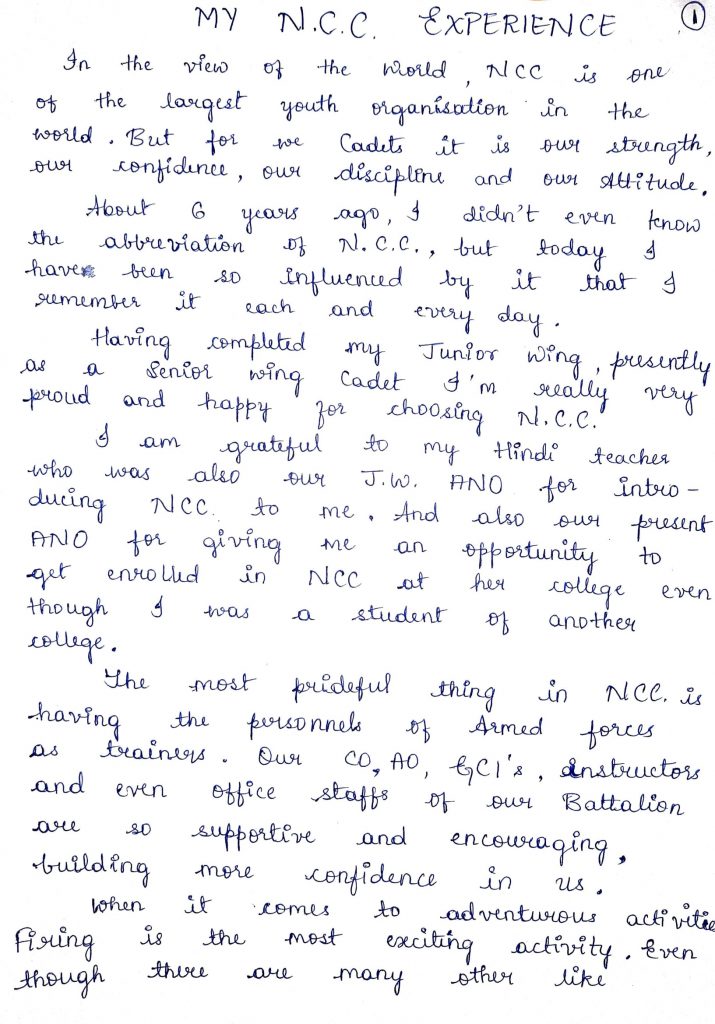 MY N.C.C. EXPERIENCE 1
In the view of the World, NCC is one
of the largest youth organisation in the
world. But for we Cadets it is our strength,
our confidence, our discipline and our Attitude.
About 6 years ago, I didn't even know
the abbreviation of N.C.C., but today I
have been so influenced by it that I
remember it each and every day.
Having completed my Junior Wing, presently
as a Senior wing Cadet I'm really very
proud and happy for choosing N.C.C.
I am grateful to my Hindi teacher
who was also our J.W. ANO for intro-
ducing NCC. to me. And also our present
ANO for giving me an opportunity to
get enrolled in NCC at her college even
though I was a student of another
college.
The most prideful thing in NCC. is
having the personnels of Armed forces
as trainers. Our CO, AO, GCI's, instructors
and even office staffs of our Battalion
are so supportive and encouraging,
building more confidence in us.
When it comes to adventurous activitie
Firing is the most exciting activity. Even
though there are many other like